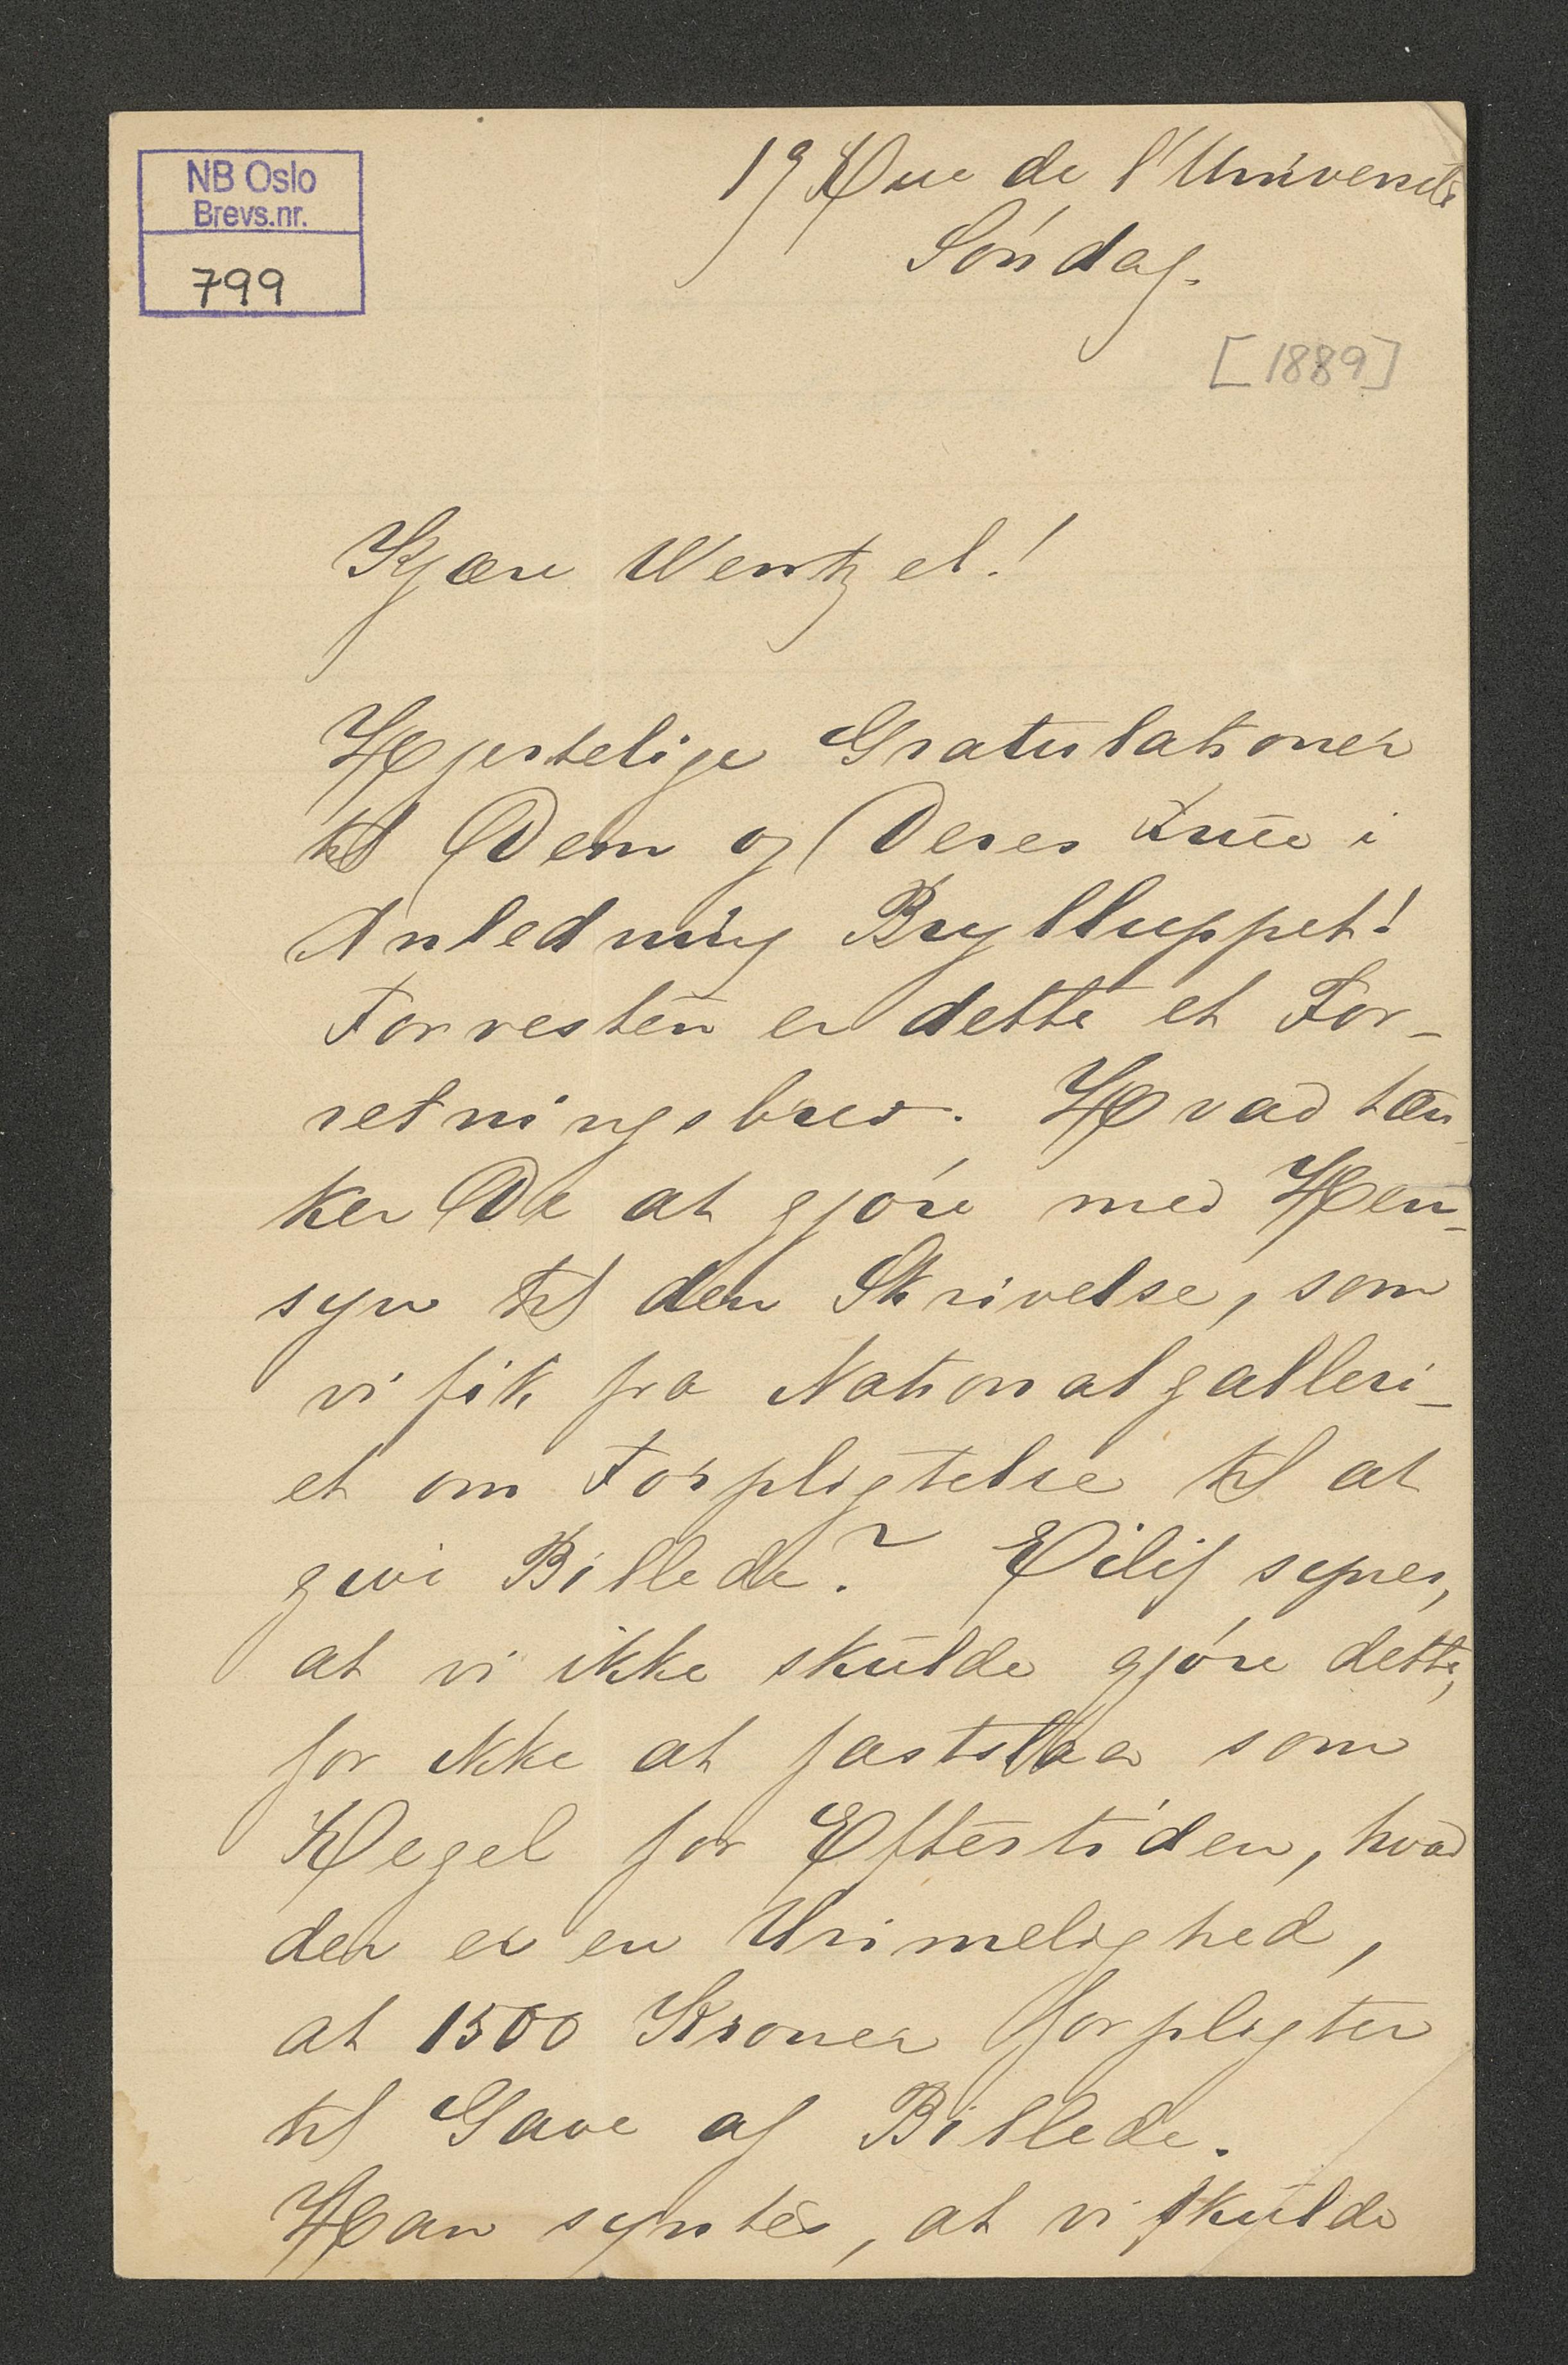 NB Oslo
Brevs.nr.
799
19 Rue de l'Université
Søndag.
[1889]
Kjære Wentzel!
Hjertelige Gratulationer
til Dem og Deres Frue i
Anledning Brylluppet!
Forresten er dette et For-
retningsbrev. Hvad tæn-
ker De at gjøre med Hen-
syn til den Skrivelse, som
vi fik fra Nationalgalleri-
et om Forpligtelse til at
give Billede? Eilif synes,
at vi ikke skulde gjøre dette,
for ikke at fastslaa som
Regel for Eftertiden, hvad
der er en Urimelighed,
at 1500 Kroner forpligter
til Gave af Billede.
Han syntes, at vi skulde